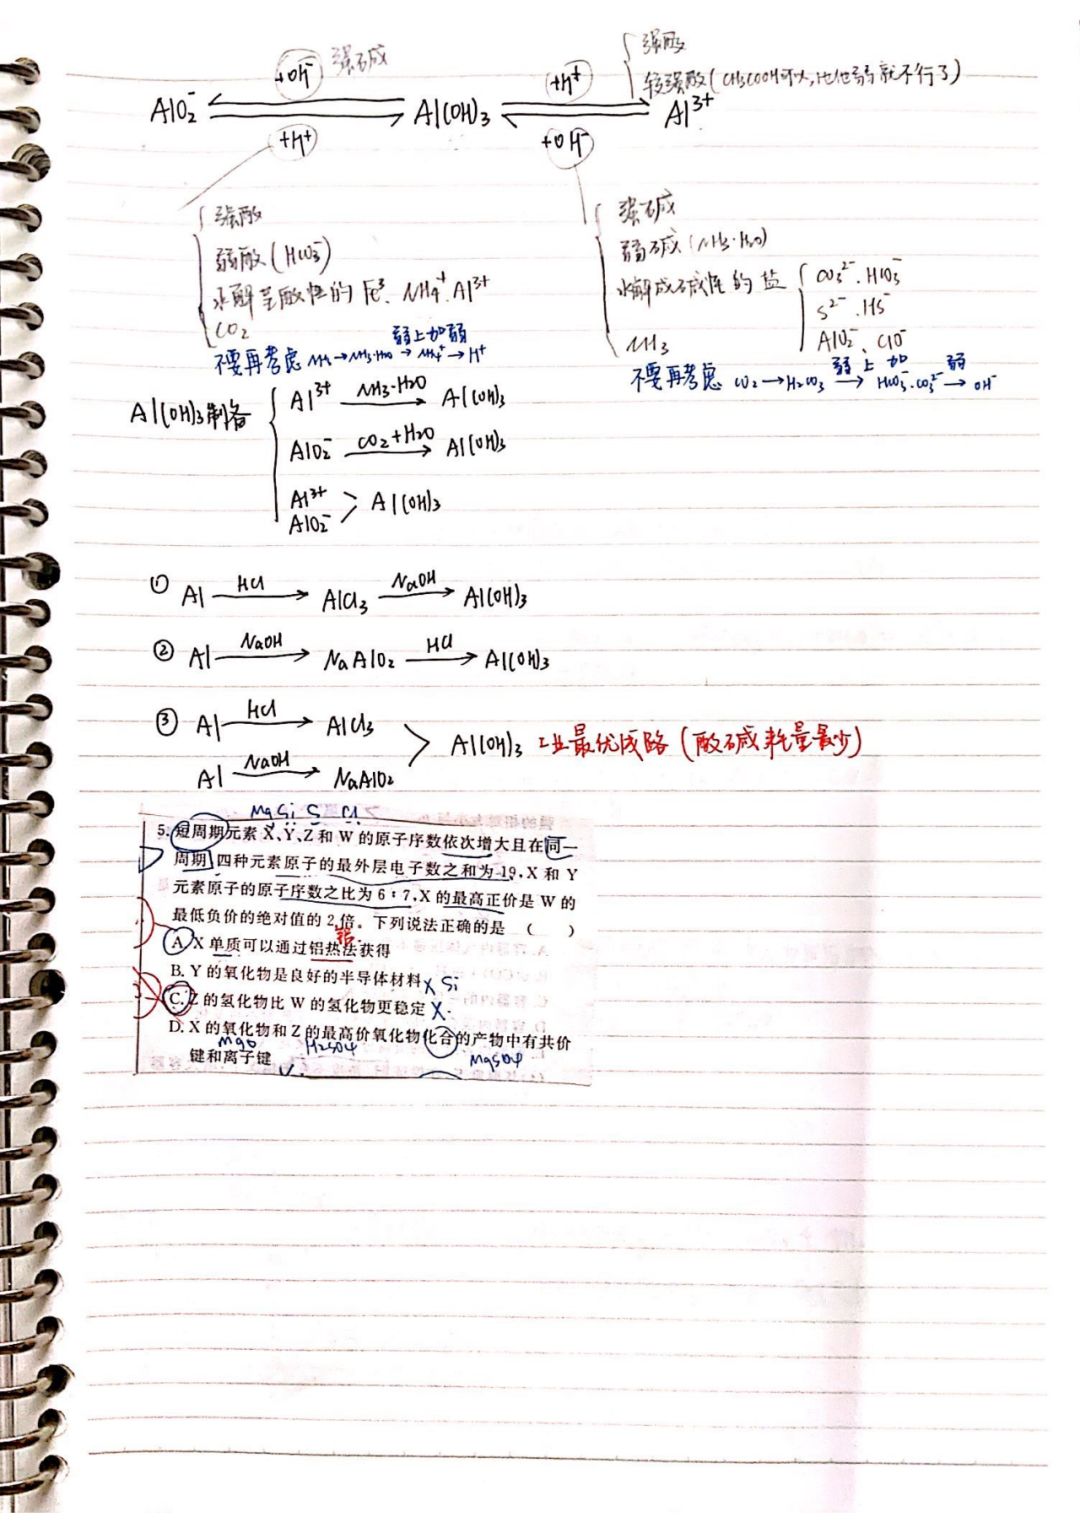 +OH⁻ 强碱
AlO₂⁻ Al(OH)₃ Al³⁺
+H⁺
+H⁺ { 强酸
较强酸(CH₃COOH可以,其他弱就不行了)
+OH⁻
强酸
弱酸(HCO₃⁻)
水解呈酸性的 Fe³⁺、NH₄⁺、Al³⁺
CO₂
不要再考虑 NH₃→NH₃·H₂O 弱上加弱 → NH₄⁺→H⁺
强碱
弱碱(NH₃·H₂O)
水解成碱性的盐 { CO₃²⁻、HCO₃⁻
S²⁻、HS⁻
AlO₂⁻、ClO⁻
NH₃
不要再考虑 CO₂→H₂CO₃ 弱上加弱 → HCO₃⁻、CO₃²⁻→OH⁻
Al(OH)₃制备 { Al³⁺ NH₃·H₂O → Al(OH)₃
AlO₂⁻ CO₂+H₂O → Al(OH)₃
Al³⁺
AlO₂⁻ > Al(OH)₃
① Al HCl → AlCl₃ NaOH → Al(OH)₃
② Al NaOH → NaAlO₂ HCl → Al(OH)₃
③ Al HCl → AlCl₃
Al NaOH → NaAlO₂ > Al(OH)₃ 工业最优线路(酸碱耗量最少)
Mg Si S Cl
5. 短周期元素 X、Y、Z 和 W 的原子序数依次增大且在同一
周期,四种元素原子的最外层电子数之和为 19,X 和 Y
元素原子的原子序数之比为 6∶7,X 的最高正价是 W 的
最低负价的绝对值的 2 倍。下列说法正确的是 ( )
A. X 单质可以通过铝热法获得
B. Y 的氧化物是良好的半导体材料 × Si
C. Z 的氢化物比 W 的氢化物更稳定 ×
D. X 的氧化物和 Z 的最高价氧化物化合的产物中有共价
键和离子键 MgO H₂SO₄ MgSO₄ ✓